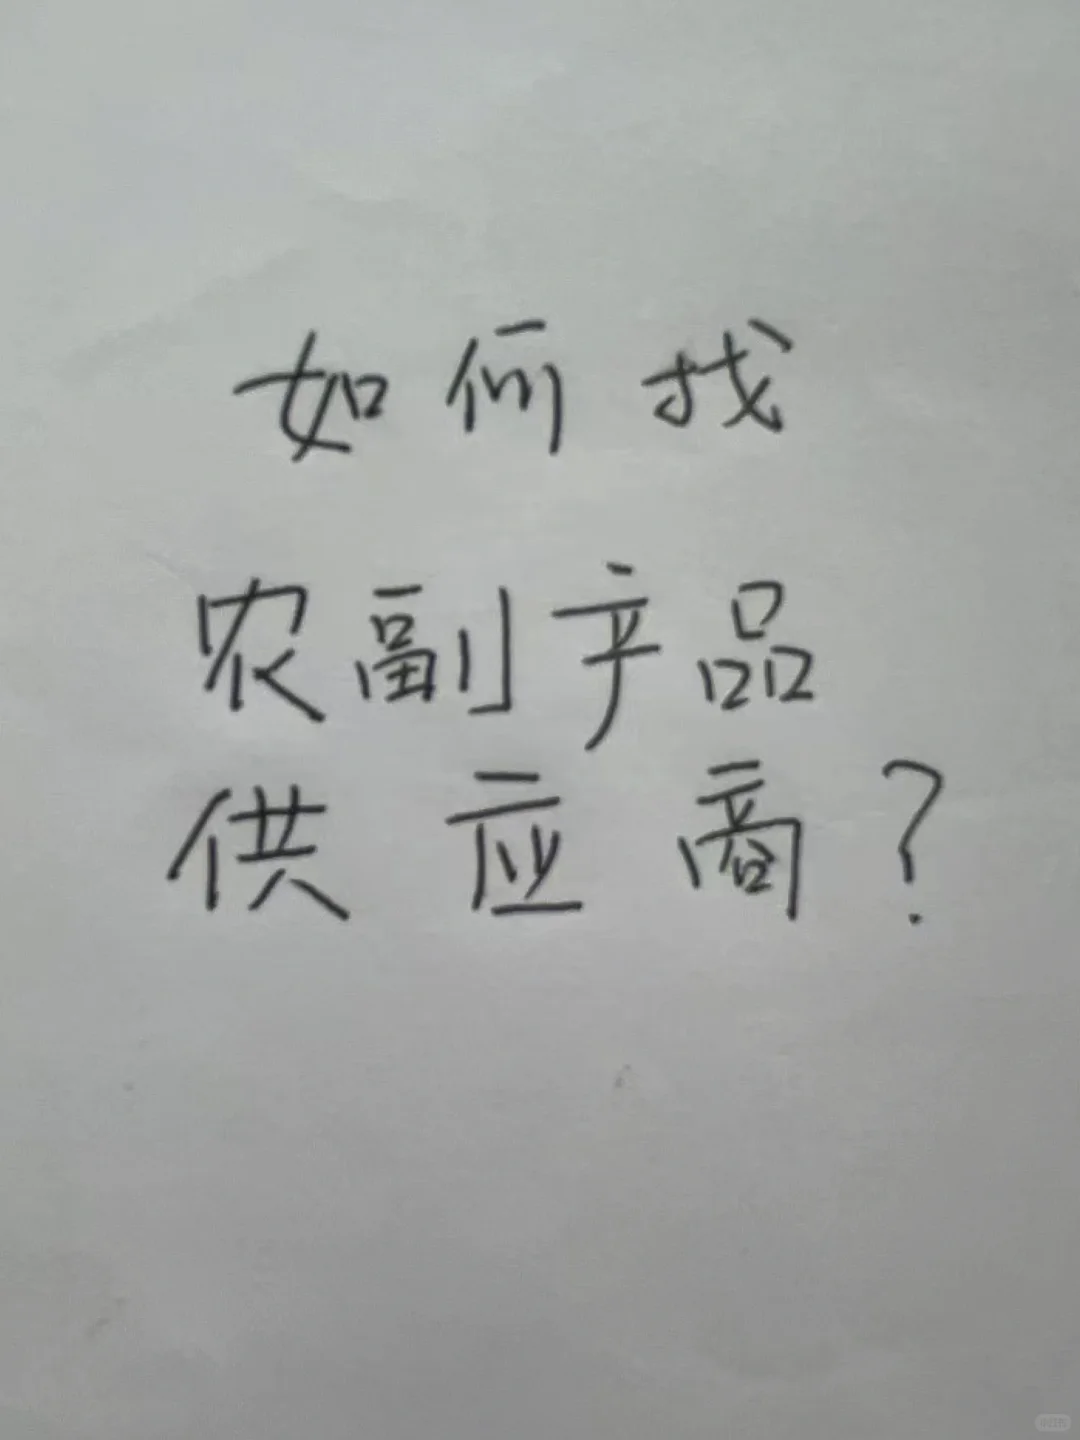 如何找
农副产品
供应商?